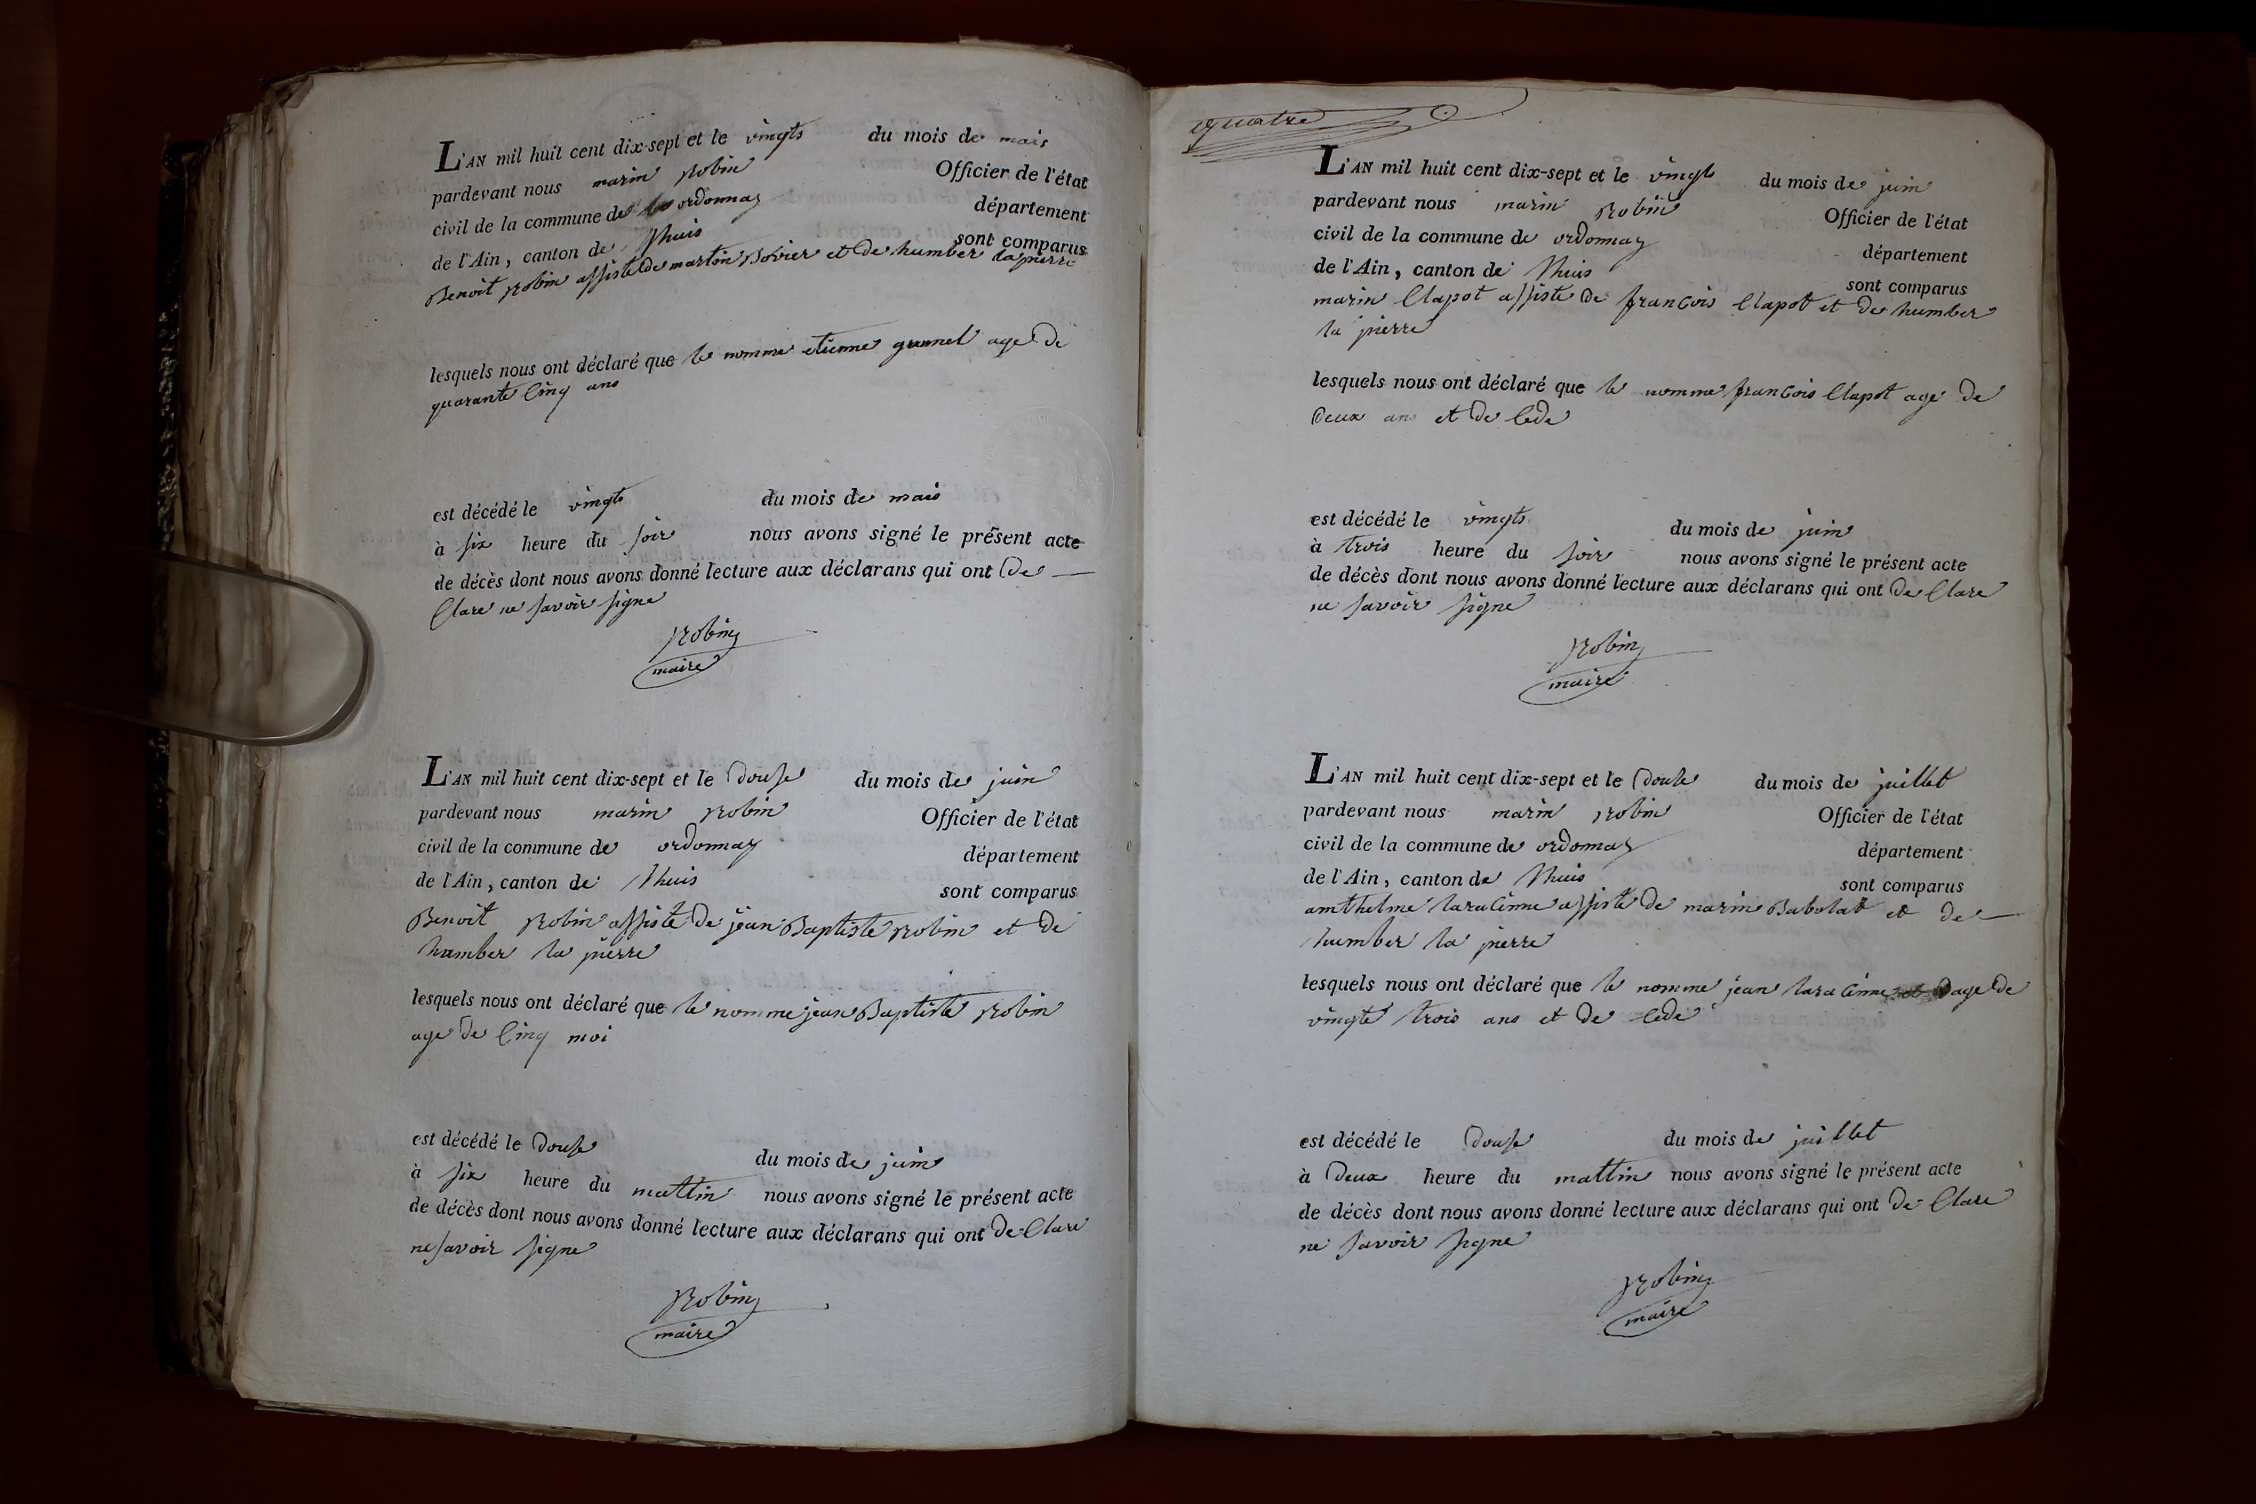 L'AN mil huit cent dix-sept et le vingts du mois de mais
pardevant nous marin Robin Officier de l'état
civil de la commune de ordonnaz département
de l'Ain, canton de Lhuis sont comparus
Benoit Robin assisté de martin Bovier et de humber la pierre
lesquels nous ont déclaré que le nomme etienne age de
quarante cinq ans
est décédé le vingts du mois de mais
à six heure du soir nous avons signé le présent acte
de décès dont nous avons donné lecture aux déclarans qui ont de
Clare ne savoir signe
Robin
maire
L'AN mil huit cent dix-sept et le douse du mois de juin
pardevant nous marin Robin Officier de l'état
civil de la commune de ordonnaz département
de l'Ain, canton de Lhuis sont comparus
Benoit Robin assiste de jean Baptiste Robin et de
humber la pierre
lesquels nous ont déclaré que le nomme jean Baptiste Robin
age de Cinq moi
est décédé le douse du mois de juin
à six heure du mattin nous avons signé le présent acte
de décès dont nous avons donné lecture aux déclarans qui ont de Clare
ne savoir signe
Robin
maire
quatre
L'AN mil huit cent dix-sept et le vingt du mois de juin
pardevant nous marin Robin Officier de l'état
civil de la commune de ordonnaz département
de l'Ain, canton de Lhuis sont comparus
marin Clapot assiste de francois Clapot et de humber
la pierre
lesquels nous ont déclaré que le nomme francois Clapot age de
deux ans et de Cede
est décédé le vingts du mois de juin
à trois heure du soir nous avons signé le présent acte
de décès dont nous avons donné lecture aux déclarans qui ont de Clare
ne savoir signe
Robin
maire
L'AN mil huit cent dix-sept et le douse du mois de juillet
pardevant nous marin Robin Officier de l'état
civil de la commune de ordonnaz département
de l'Ain, canton de Lhuis sont comparus
amthelme laracinne assiste de marin Babolat et de
humber la pierre
lesquels nous ont déclaré que le nomme jean laracinne age de
vingts trois ans et de Cede
est décédé le douse du mois de juillet
à deux heure du mattin nous avons signé le présent acte
de décès dont nous avons donné lecture aux déclarans qui ont de Clare
ne savoir signe
Robin
maire